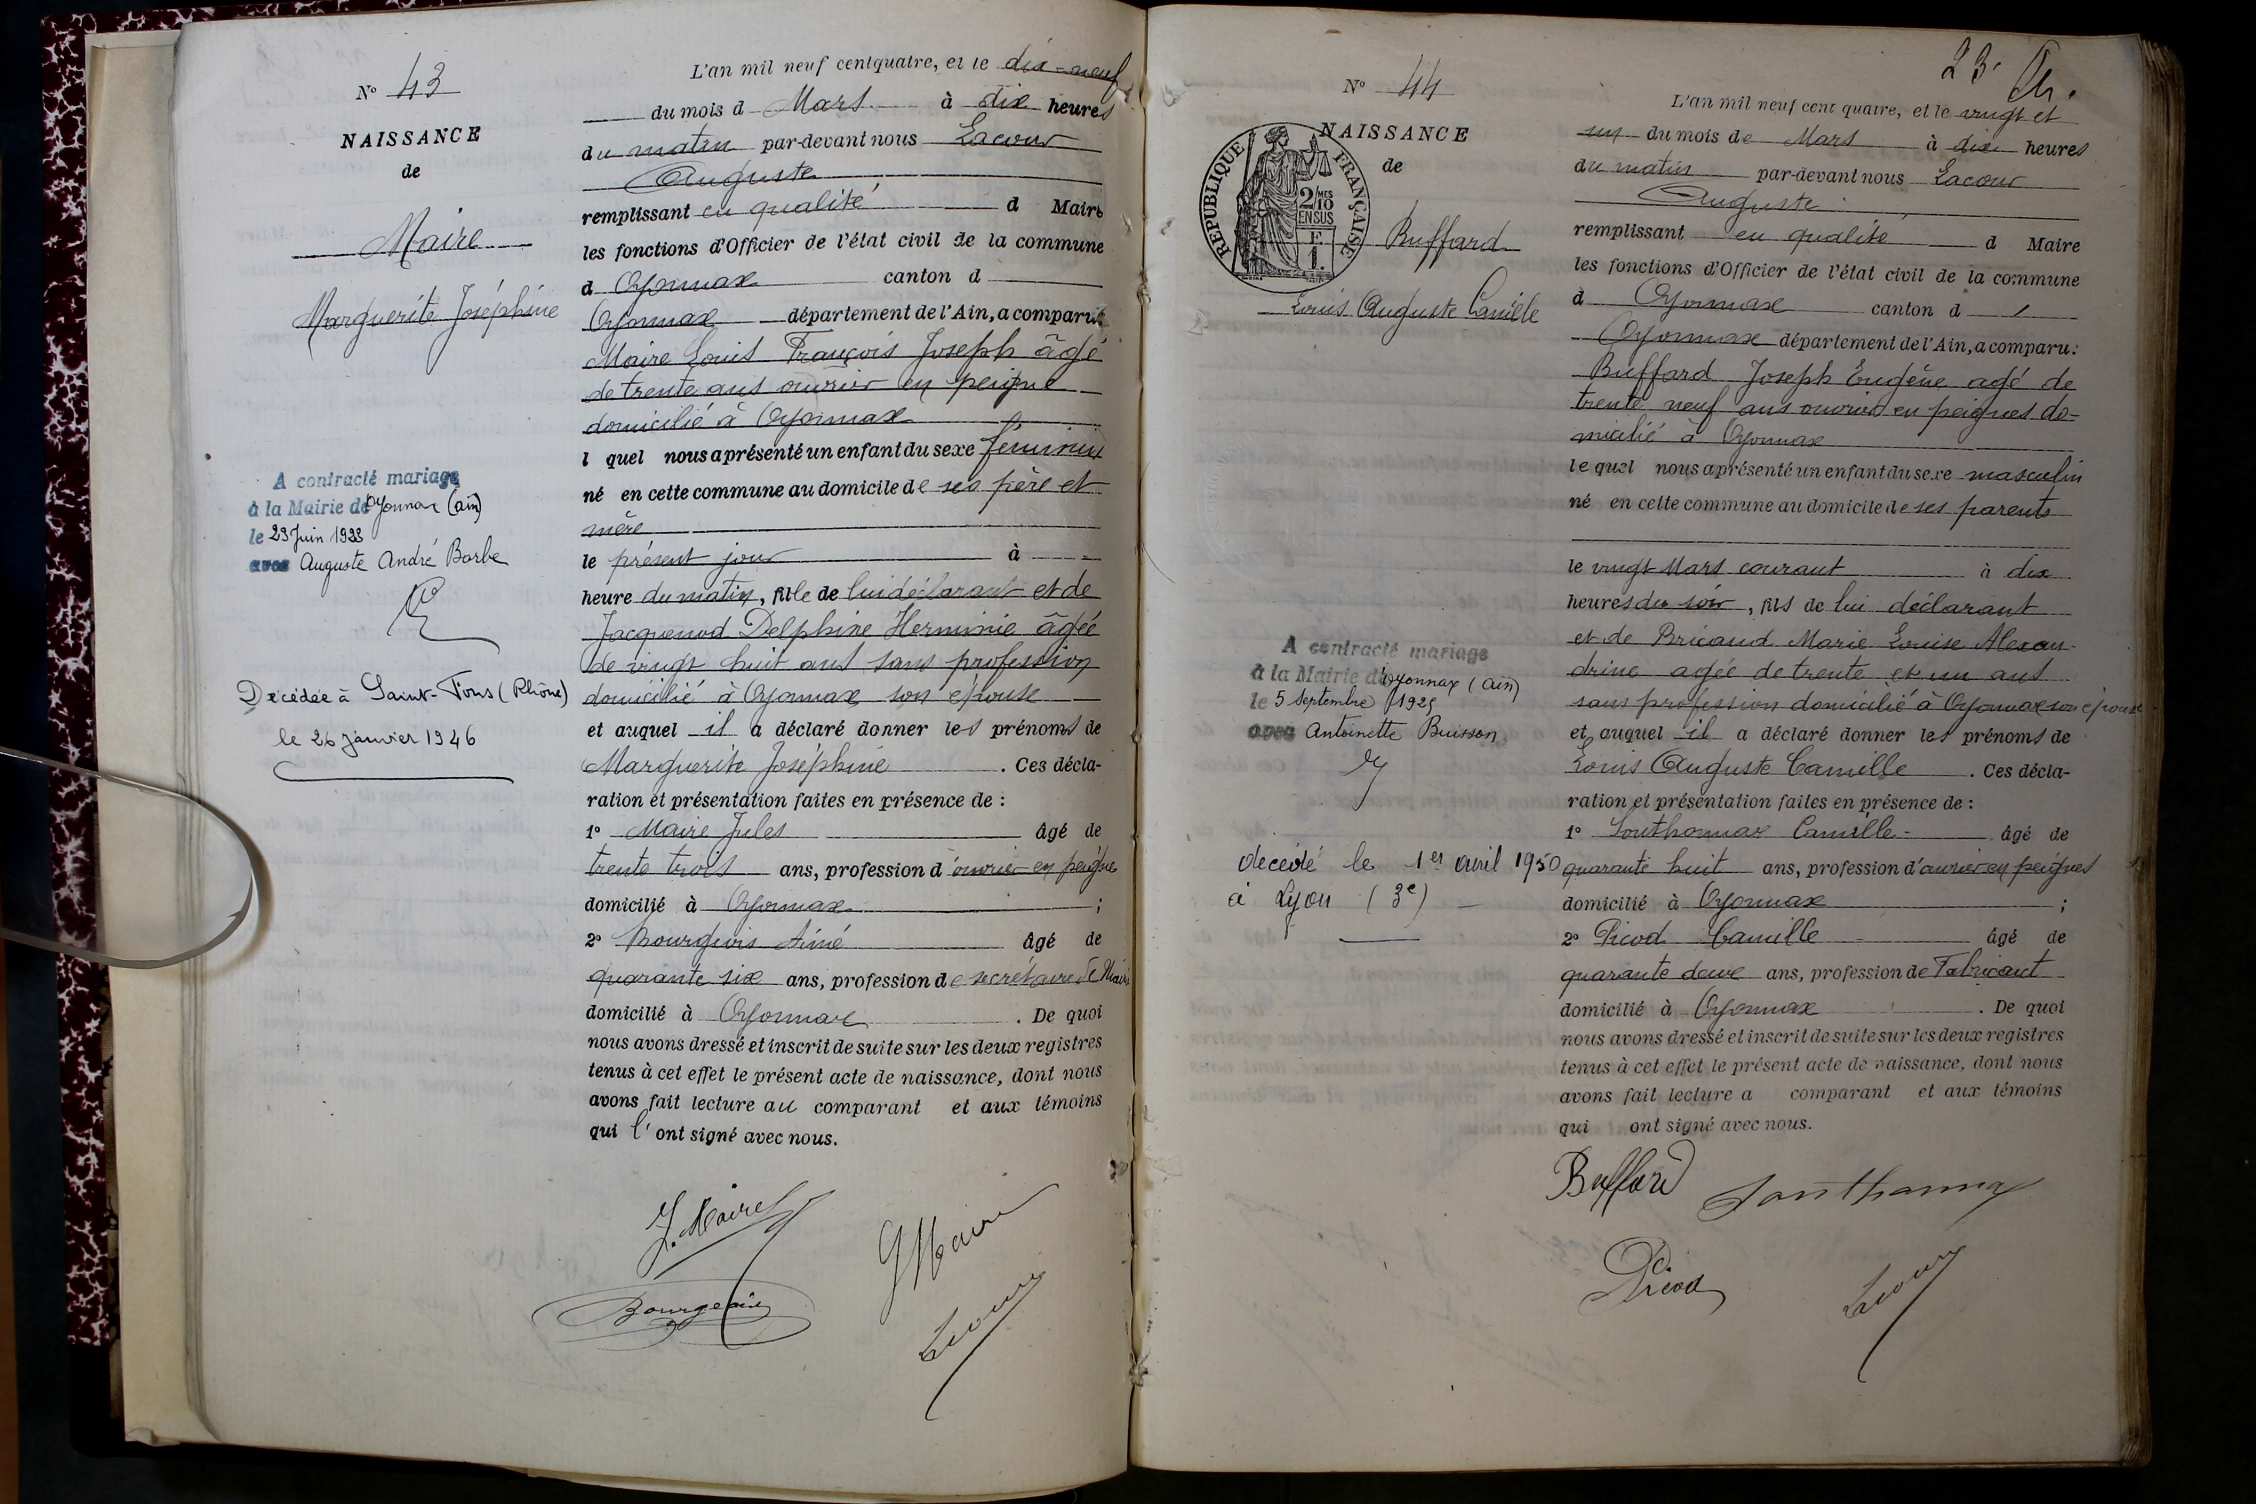 N° 43
NAISSANCE
de
Maire
Marguerite Joséphine
A contracté mariage
à la Mairie de Oyonnax (Ain)
le 23 Juin 1933
avec Auguste André Barbe
Décédée à Saint-Fons (Rhône)
le 26 janvier 1946
L'an mil neuf cent quatre, et le dix-neuf
du mois d Mars à dix heures
du matin par-devant nous Lacour
Auguste
remplissant en qualité d Maire
les fonctions d'Officier de l'état civil de la commune
d Oyonnax canton d
Oyonnax département de l'Ain, a comparu
Maire Louis François Joseph âgé
de trente ans ouvrier en peigne
domicilié à Oyonnax
l quel nous a présenté un enfant du sexe féminin
né en cette commune au domicile de ses père et
mère
le présent jour à
heure du matin, fille de lui déclarant et de
Jacquenod Delphine Herminie âgée
de vingt huit ans sans profession
domicilié à Oyonnax son épouse
et auquel il a déclaré donner les prénoms de
Marguerite Joséphine . Ces décla-
ration et présentation faites en présence de :
1° Maire Jules âgé de
trente trois ans, profession d'ouvrier en peigne
domicilié à Oyonnax ;
2° Bourgeois Aimé âgé de
quarante six ans, profession de secrétaire de Mairie
domicilié à Oyonnax . De quoi
nous avons dressé et inscrit de suite sur les deux registres
tenus à cet effet le présent acte de naissance, dont nous
avons fait lecture au comparant et aux témoins
qui l'ont signé avec nous.
J. Maire
G Maire
Bourgeois
Lacour
23.
N° 44
NAISSANCE
de
RÉPUBLIQUE FRANÇAISE
2/10 MES
EN SUS
F.
1.
Buffard
Louis Auguste Camille
A contracté mariage
à la Mairie d'Oyonnax (Ain)
le 5 septembre 1925
avec Antoinette Buisson
décédé le 1er avril 1950
à Lyon (3e)
L'an mil neuf cent quatre, et le vingt et
un du mois de Mars à dix heures
du matin par-devant nous Lacour
Auguste
remplissant en qualité d Maire
les fonctions d'Officier de l'état civil de la commune
d Oyonnax canton d
Oyonnax département de l'Ain, a comparu :
Buffard Joseph Eugène agé de
trente neuf ans ouvrier en peignes do-
micilié à Oyonnax
le quel nous a présenté un enfant du sexe masculin
né en cette commune au domicile de ses parents
le vingt Mars courant à dix
heures du soir, fils de lui déclarant
et de Bricaud Marie Louise Alexan-
drine agée de trente et un ans
sans profession domicilié à Oyonnax son épouse
et auquel il a déclaré donner les prénoms de
Louis Auguste Camille . Ces décla-
ration et présentation faites en présence de :
1° Sonthonnax Camille âgé de
quarante huit ans, profession d'ouvrier en peignes
domicilié à Oyonnax ;
2° Picod Camille âgé de
quarante deux ans, profession de Fabricant
domicilié à Oyonnax . De quoi
nous avons dressé et inscrit de suite sur les deux registres
tenus à cet effet le présent acte de naissance, dont nous
avons fait lecture a comparant et aux témoins
qui ont signé avec nous.
Buffard
Sonthonnax
Picod
Lacour